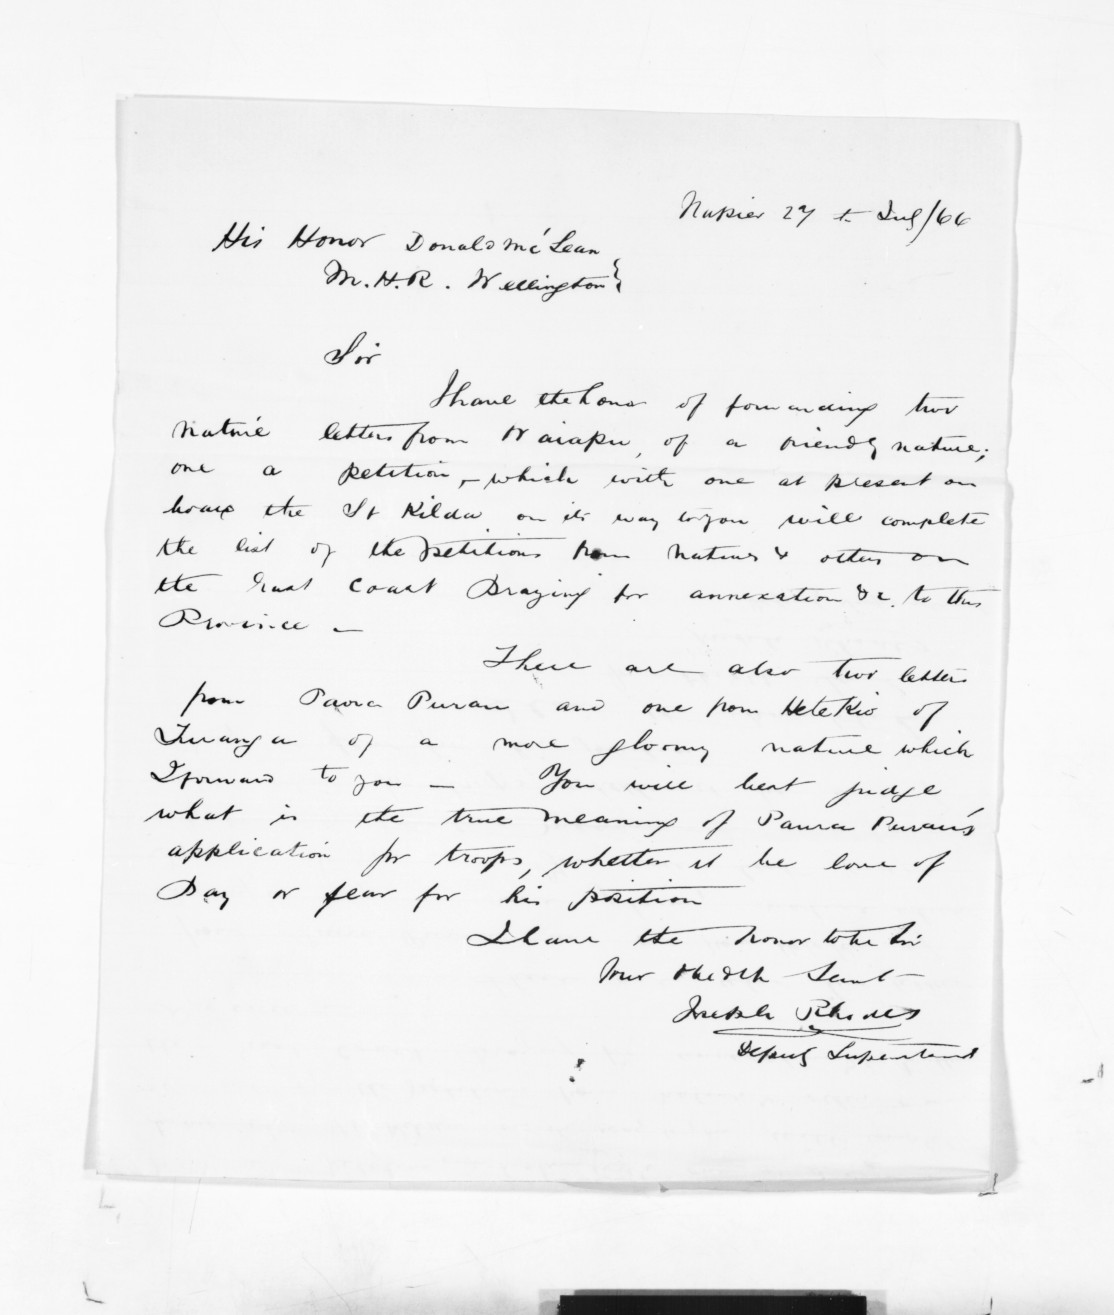 Napier 27th July/66
His Honor Donald McLean
M.H.R. Wellington
Sir
I have the honor of forwarding two
native letters from Waiapu, of a friendly nature;
one a petition, - which with one at present on
board the St Kilda on its way to you will complete
the list of the petitions from natives & others on
the East Coast Praying for annexation &c. to this
Province -
There are also two letters
from Paora Purau and one from Hetekio of
of a more gloomy nature which
I forward to you - You will best judge
what is the true meaning of Paura Purau's
application for troops, whether it be love of
Pay or fear for his position
I have the honor to be Sir
Your Obedth Servt
Joseph Rhodes
Deputy Superintend